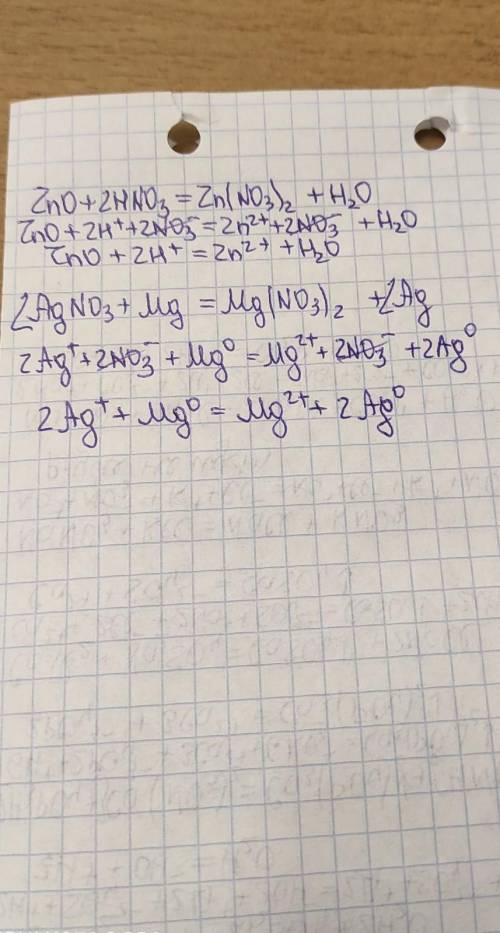 ZnO + 2HNO₃ = Zn(NO₃)₂ + H₂O
ZnO + 2H⁺ + 2NO₃⁻ = Zn²⁺ + 2NO₃⁻ + H₂O
ZnO + 2H⁺ = Zn²⁺ + H₂O
2AgNO₃ + Mg = Mg(NO₃)₂ + 2Ag
2Ag⁺ + 2NO₃⁻ + Mg⁰ = Mg²⁺ + 2NO₃⁻ + 2Ag⁰
2Ag⁺ + Mg⁰ = Mg²⁺ + 2Ag⁰